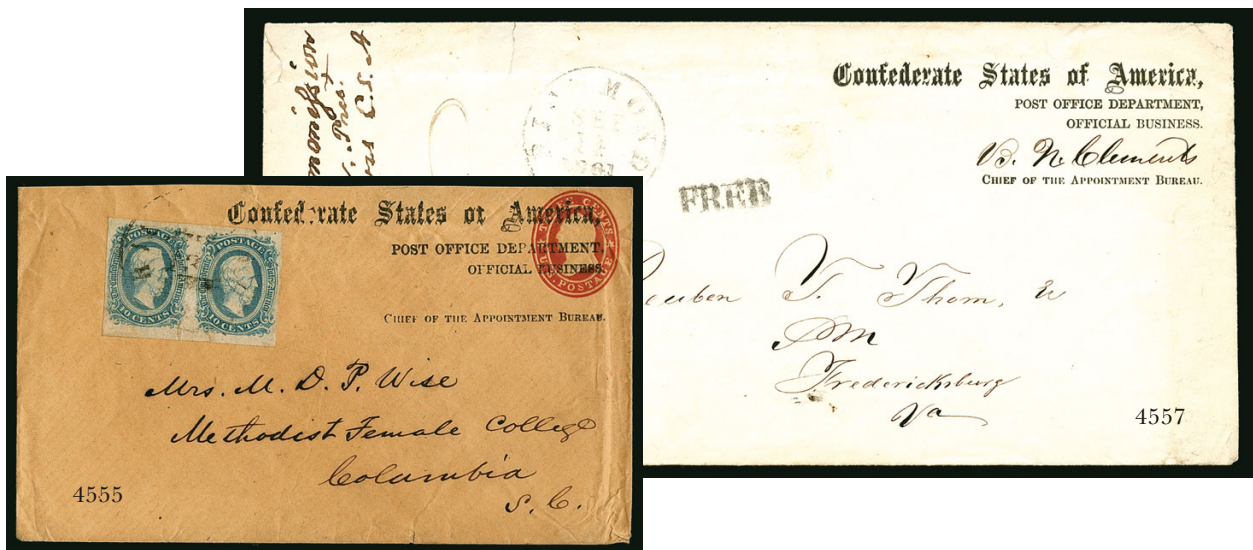 Confederate States of America,
POST OFFICE DEPARTMENT,
OFFICIAL BUSINESS.
B. N. Clements
CHIEF OF THE APPOINTMENT BUREAU.
FREE
Reuben T. Thom,
PM
Fredericksburg
Va
4557
Confederate States of America,
POST OFFICE DEPARTMENT,
OFFICIAL BUSINESS.
CHIEF OF THE APPOINTMENT BUREAU.
U.S. POSTAGE
POSTAGE
10 CENTS
POSTAGE
10 CENTS
Mrs. M. D. P. Wise
Methodist Female College
Columbia
S. C.
4555